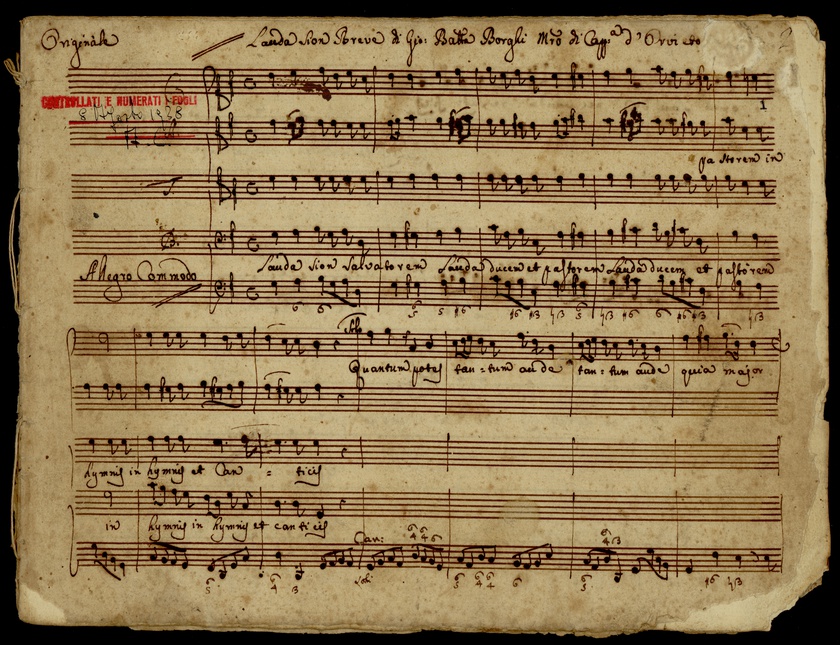 Originale
Lauda Sion Breve di Gio: Batta Borghi Mro di Capp.a d'Orvieto
CONTROLLATI E NUMERATI I FOGLI
8 Agosto 1938
1
pastorem in
Lauda Sion Salvatorem Lauda ducem et pastorem Lauda ducem et pastorem
Allegro Commodo
Solo
Quantum potes tan-tum aude tan-tum aude quia major
hymnis in hymnis et Can - ticis
in hymnis in hymnis et canticis
Can: